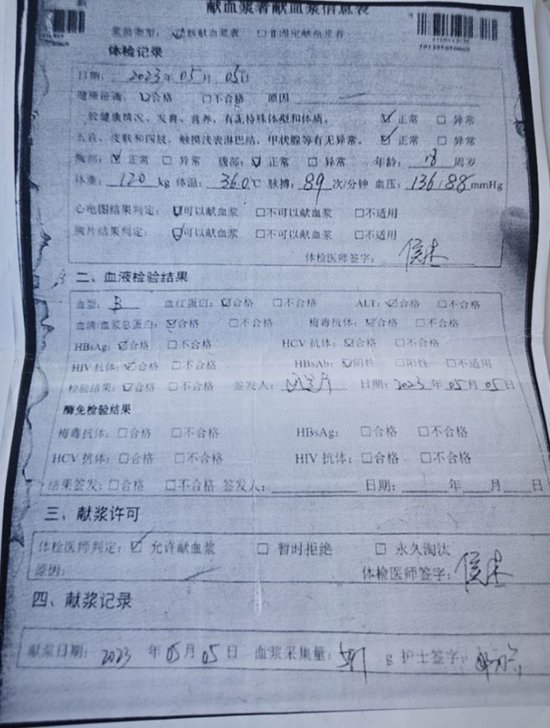 献血浆者献血浆信息表
体检记录
日期：2023年05月05日
☑合格 □不合格 原因
健康情况、发育、营养、有无特殊体型和体质。 ☑正常 □异常
五官、皮肤和四肢，触摸浅表淋巴结，甲状腺等有无异常。 ☑正常 □异常
胸部：☑正常 □异常 腹部：☑正常 □异常 年龄：18 周岁
体重：120 kg 体温：36.0℃ 脉搏：89 次/分钟 血压：136/88 mmHg
心电图结果判定：☑可以献血浆 □不可以献血浆 □不适用
胸片结果判定：☑可以献血浆 □不可以献血浆 □不适用
体检医师签字：
二、血液检验结果
血型：B 血红蛋白：☑合格 □不合格 ALT：☑合格 □不合格
血清/血浆总蛋白：☑合格 □不合格 梅毒抗体：☑合格 □不合格
HBsAg：☑合格 □不合格 HCV抗体：☑合格 □不合格
HIV抗体：☑合格 □不合格 HBsAb：☑阴性 □阳性 □不适用
检验结果：☑合格 □不合格 签发人： 日期：2023年05月05日
酶免检验结果
梅毒抗体：□合格 □不合格 HBsAg：□合格 □不合格
HCV抗体：□合格 □不合格 HIV抗体：□合格 □不合格
结果签发：□合格 □不合格 签发人： 日期： 年 月 日
三、献浆许可
体检医师判定：☑允许献血浆 □暂时拒绝 □永久淘汰
原因： 体检医师签字：
四、献浆记录
献浆日期：2023年05月05日 血浆采集量： g 护士签字：